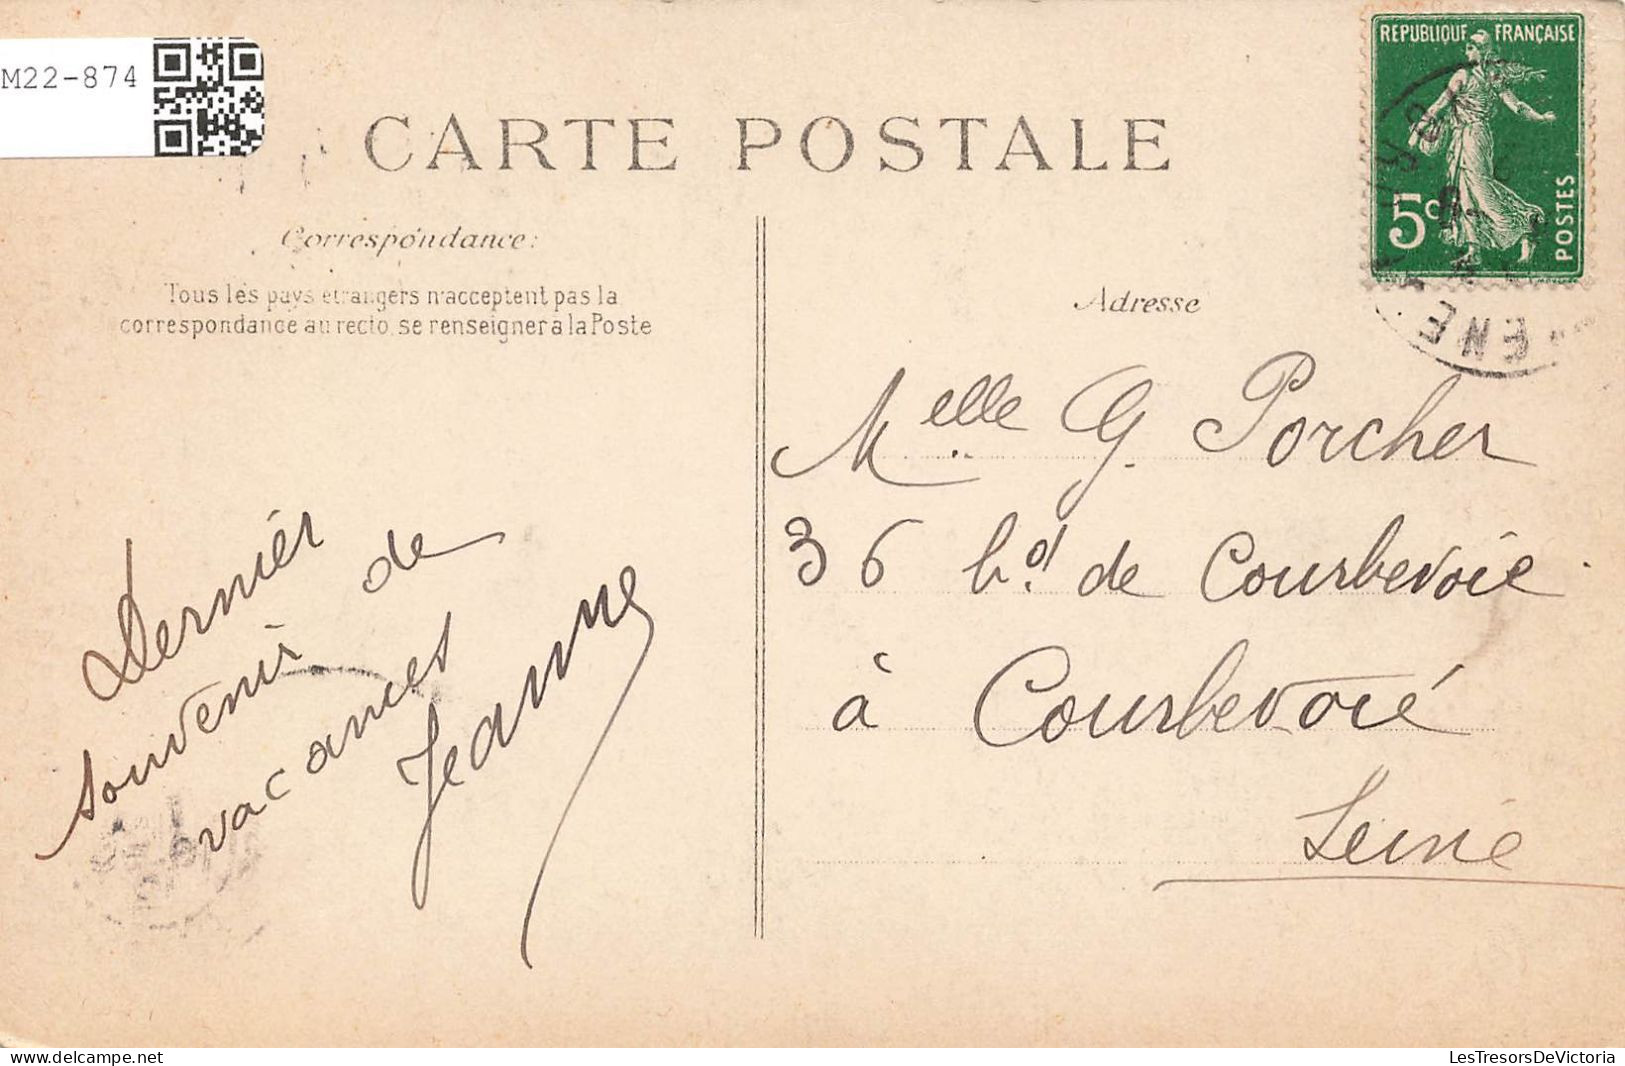 M22-874
CARTE POSTALE
REPUBLIQUE FRANÇAISE
5c
POSTES
Correspondance:
Tous les pays étrangers n'acceptent pas la
correspondance au recto, se renseigner à la Poste
Adresse
Melle G. Porcher
36 bd de Courbevoie
à Courbevoie
Seine
Dernier
souvenir de
vacances
Jeanne
Delcampe.net
LesTresorsDeVictoria